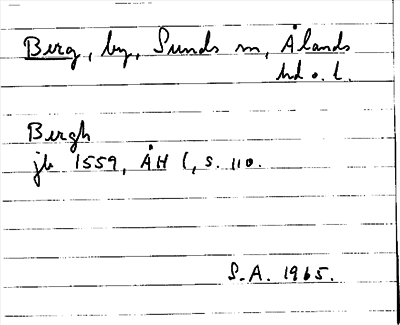 Berg, by, Sunds sn, Ålands
hd o. l.
Bergh
jb 1559, ÅH 1, s. 110.
S.A. 1965.